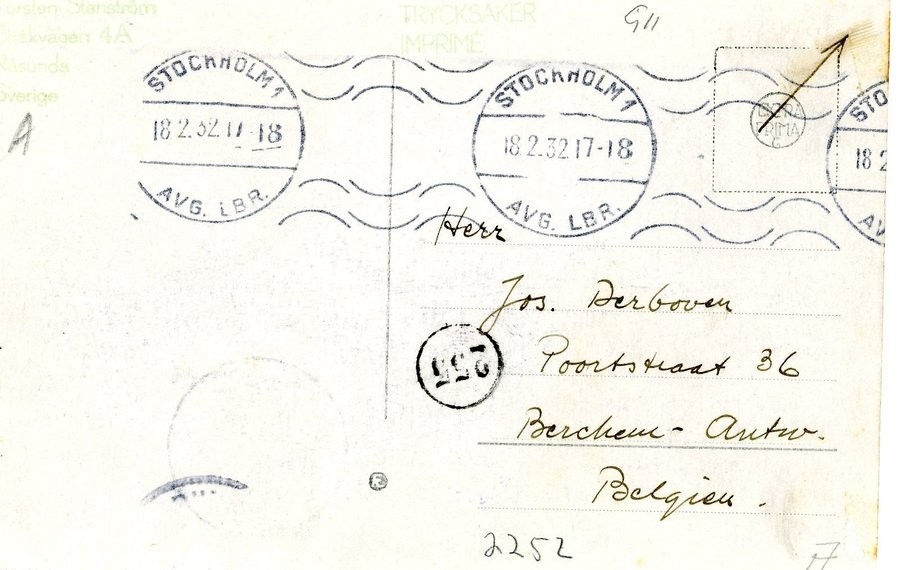 Torsten Stenström
4A
Råsunda
Sverige
TRYCKSAKER
IMPRIMÉ
G11
A
STOCKHOLM 1
18.2.32.17-18
AVG. LBR.
STOCKHOLM 1
18.2.32 17-18
AVG. LBR.
STO
18 2
AV
Herr
Jos. Derboven
Poortstraat 36
Berchem - Antw.
Belgien.
255
2252